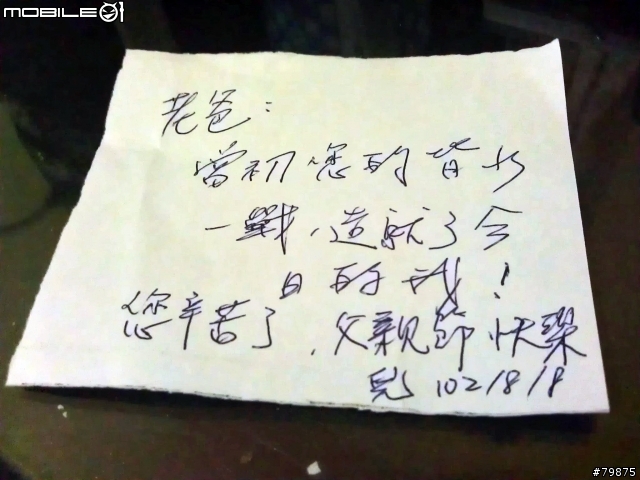 MOBILE01
老爸:
當初您的背水
一戰,造就了今
日的我!
您辛苦了,父親節快樂
兒 102/8/8
#79875